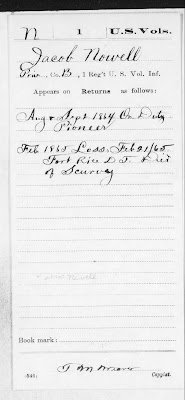 N 1 U.S. Vols.
Jacob Nowell
Priv., Co. B, 1 Reg't U. S. Vol. Inf.
Appears on Returns as follows:
Aug & Sept 1864 On Duty
Pioneer
Feb 1865 Loss: Feb 21/65
Fort Rice D.T. Died
of Scurvey
Book mark:
Copyist.